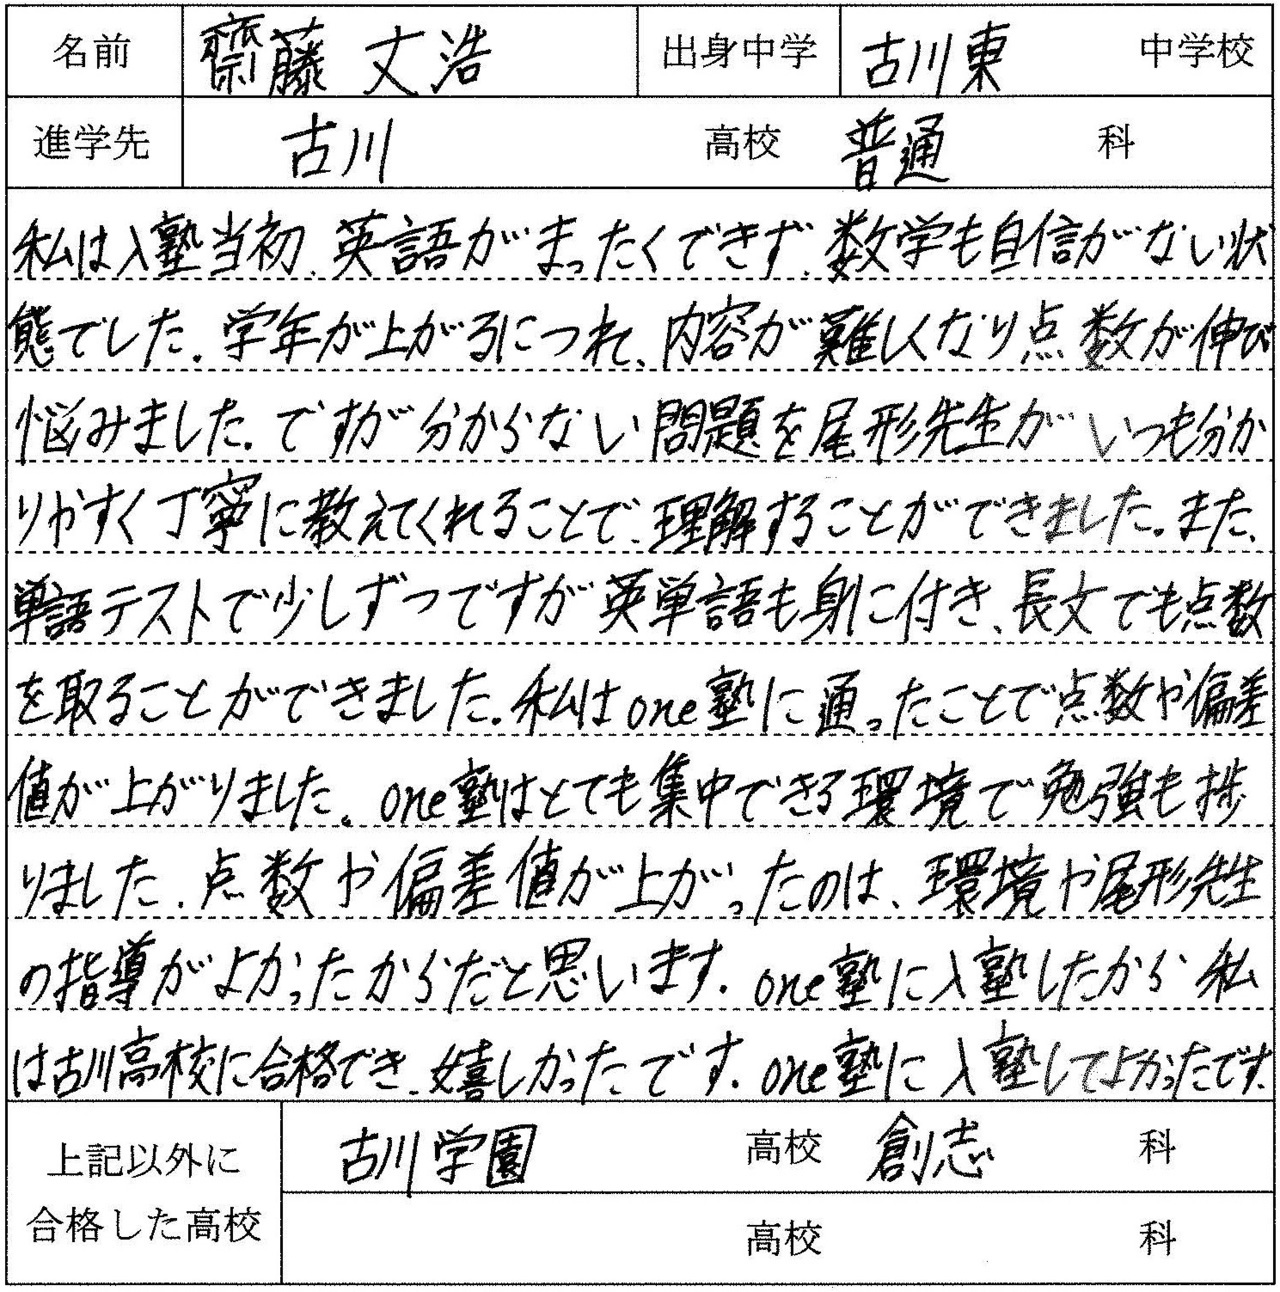 名前 齋藤 丈浩 出身中学 古川東 中学校
進学先 古川 高校 普通 科
私は入塾当初、英語がまったくできず、数学も自信がない状
態でした。学年が上がるにつれ、内容が難しくなり点数が伸び
悩みました。ですが分からない問題を尾形先生がいつも分か
りやすく丁寧に教えてくれることで、理解することができました。また、
単語テストで少しずつですが英単語も身に付き、長文でも点数
を取ることができました。私はone塾に通ったことで点数や偏差
値が上がりました。one塾はとても集中できる環境で勉強も捗
りました。点数や偏差値が上がったのは、環境や尾形先生
の指導がよかったからだと思います。one塾に入塾したから私
は古川高校に合格でき、嬉しかったです。one塾に入塾してよかったです。
上記以外に
合格した高校
古川学園 高校 創志 科
高校 科